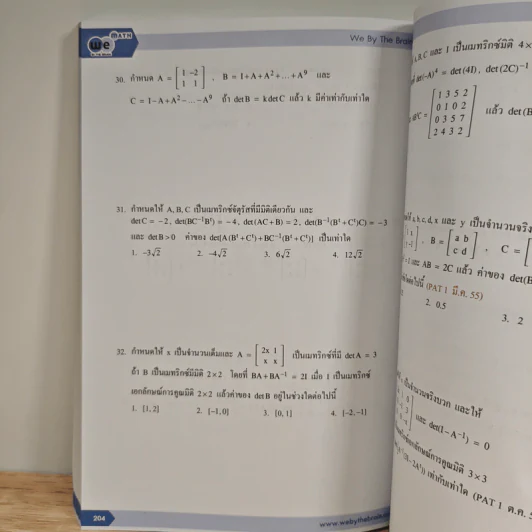 We MATH
BY THE BRAIN
We By The Brain
30. กำหนด A = [1 -2; 1 1] , B = I+A+A²+...+A⁹ และ
C = I-A+A²-...-A⁹ ถ้า detB = kdetC แล้ว k มีค่าเท่ากับเท่าใด
31. กำหนดให้ A, B, C เป็นเมทริกซ์จัตุรัสที่มีมิติเดียวกัน และ
detC = -2, det(BC⁻¹Bᵗ) = -4, det(AC+B) = 2, det(B⁻¹(Bᵗ+Cᵗ)C) = -3
และ detB>0 ค่าของ det[A(Bᵗ+Cᵗ)+BC⁻¹(Bᵗ+Cᵗ)] เป็นเท่าใด
1. -3√2 2. -4√2 3. 6√2 4. 12√2
32. กำหนดให้ x เป็นจำนวนเต็มและ A = [2x 1; x x] เป็นเมทริกซ์ที่มี detA = 3
ถ้า B เป็นเมทริกซ์มีมิติ 2×2 โดยที่ BA+BA⁻¹ = 2I เมื่อ I เป็นเมทริกซ์
เอกลักษณ์การคูณมิติ 2×2 แล้วค่าของ detB อยู่ในช่วงใดต่อไปนี้
1. [1, 2] 2. [-1, 0] 3. [0, 1] 4. [-2, -1]
204
www.webythebrain.
A, B, C และ I เป็นเมทริกซ์มิติ 4×
det(-A)⁴ = det(4I), det(2C)⁻¹
C = [1 3 5 2; 0 1 0 2; 0 3 5 7; 2 4 3 2] แล้ว det(B
a, b, c, d, x และ y เป็นจำนวนจริง
, B = [a b; c d] , C = [
และ AB = 2C แล้ว ค่าของ det(B
(PAT 1 มี.ค. 55)
2. 0.5
3. 2
เป็นจำนวนจริงบวก และให้
และ det(I-A⁻¹) = 0
การคูณมิติ 3×3
เท่ากับเท่าใด (PAT 1 ต.ค. 5